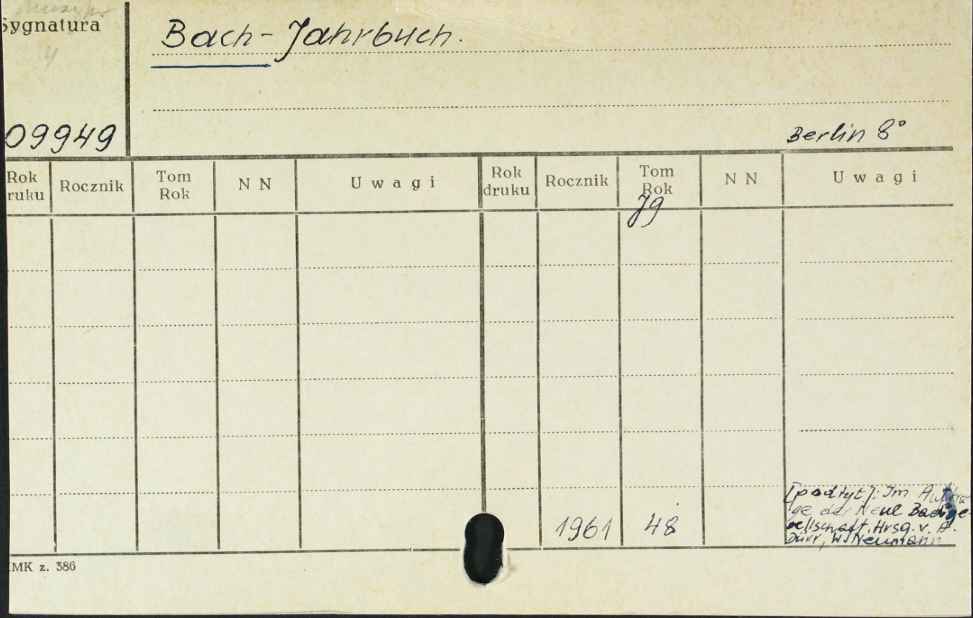 Sygnatura
Bach-Jahrbuch.
09949
Berlin 8°
Rok druku Rocznik Tom Rok N N Uwagi Rok druku Rocznik Tom Rok N N Uwagi
Jg
1961 48
[podtyt]: Im Auftra
ge der Neue Bachge-
sellschaft. Hrsg. v. A.
Dürr, W. Neumann
MK z. 386